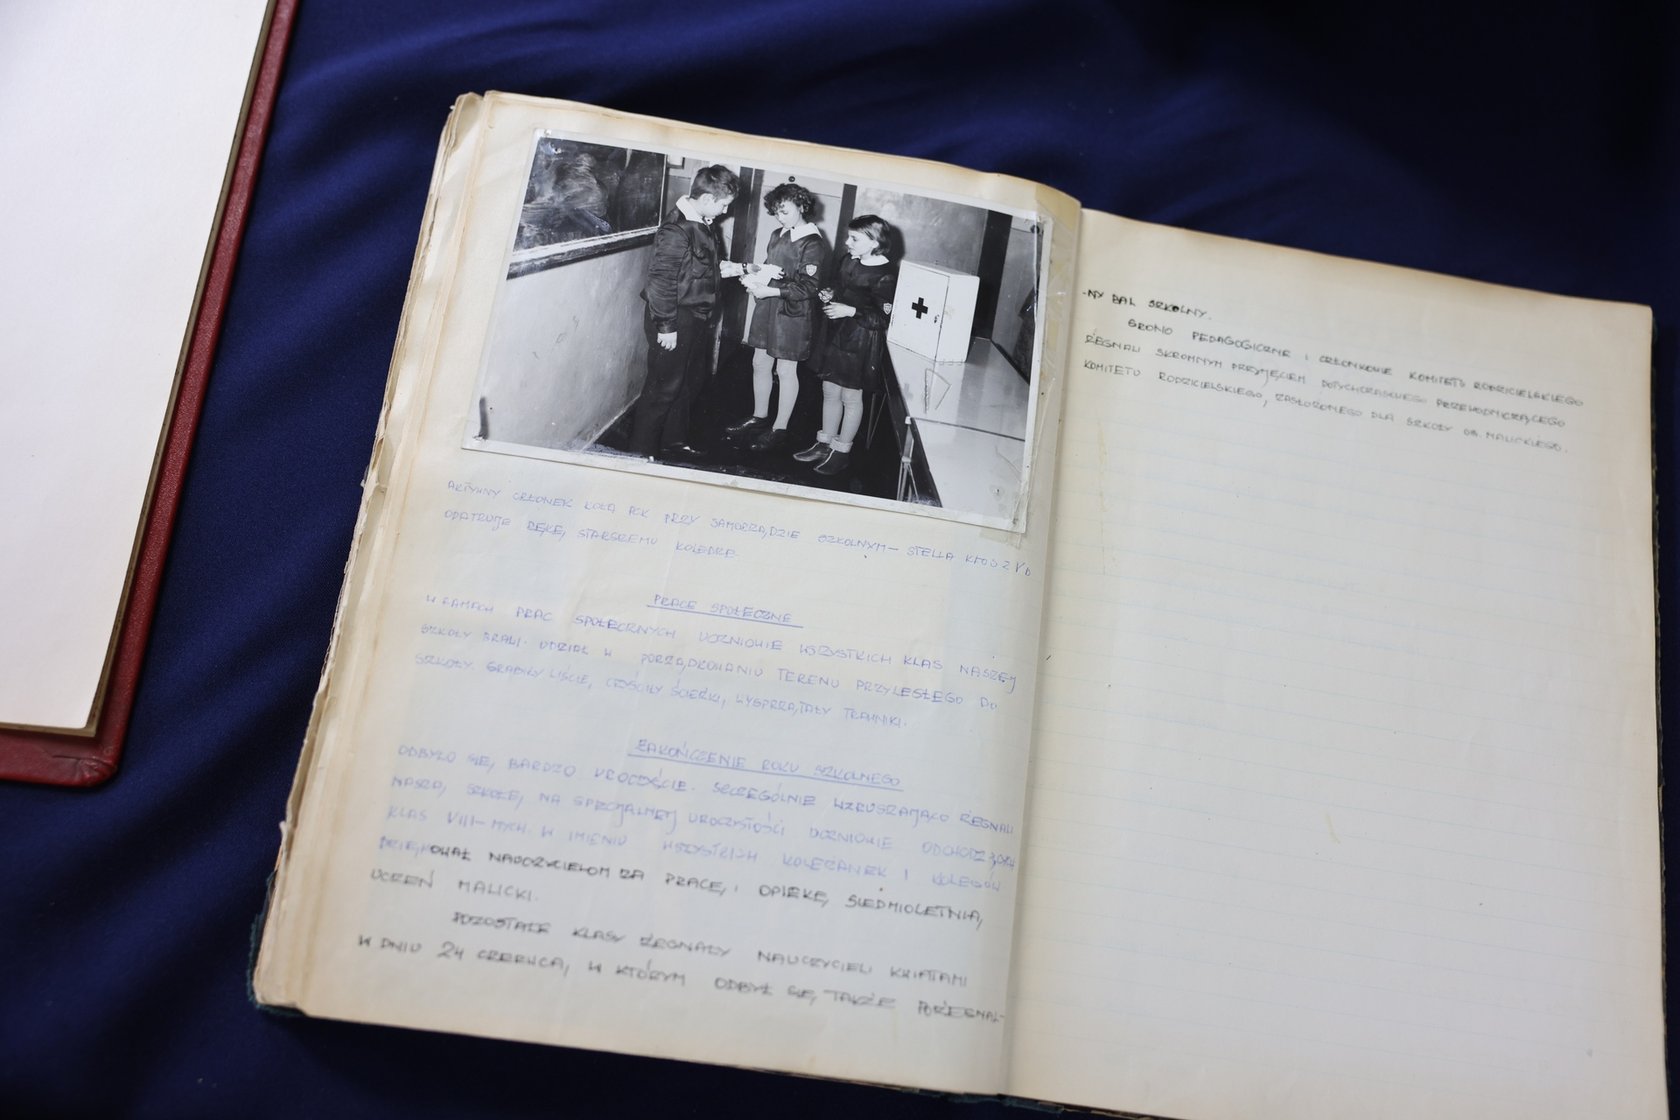 AKTYWNY CZŁONEK KOŁA PCK PRZY SAMORZĄDZIE SZKOLNYM – STELLA KŁOS Z V b
OPATRUJE RĘKĘ, STARSZEMU KOLEDZE.
PRACE SPOŁECZNE
W RAMACH PRAC SPOŁECZNYCH UCZNIOWIE WSZYSTKICH KLAS NASZEJ
SZKOŁY BRALI UDZIAŁ W PORZĄDKOWANIU TERENU PRZYLEGŁEGO DO
SZKOŁY. GRABIŁY LIŚCIE, CZYŚCIŁY ŚCIEŻKI, WYSPRZĄTAŁY TRAWNIKI.
ZAKOŃCZENIE ROKU SZKOLNEGO
ODBYŁO SIĘ, BARDZO UROCZYŚCIE. SZCZEGÓLNIE WZRUSZAJĄCO ŻEGNALI
NASZĄ, SZKOŁĘ, NA SPECJALNEJ UROCZYSTOŚCI UCZNIOWIE ODCHODZĄCY
KLAS VIII–MYCH. W IMIENIU WSZYSTKICH KOLEŻANEK I KOLEGÓW
DZIĘKOWAŁ NAUCZYCIELOM ZA PRACĘ, I OPIEKĘ, SIEDMIOLETNIĄ,
UCZEŃ MALICKI.
POZOSTAŁE KLASY ŻEGNAŁY NAUCZYCIELI KWIATAMI
W DNIU 24 CZERWCA, W KTÓRYM ODBYŁ SIĘ, TAKŻE POŻEGNAL-
-NY BAL SZKOLNY.
GRONO PEDAGOGICZNE I CZŁONKOWIE KOMITETU RODZICIELSKIEGO
ŻEGNALI SKROMNYM PRZYJĘCIEM DOTYCHCZASOWEGO PRZEWODNICZĄCEGO
KOMITETU RODZICIELSKIEGO, ZASŁUŻONEGO DLA SZKOŁY OB. MALICKIEGO.